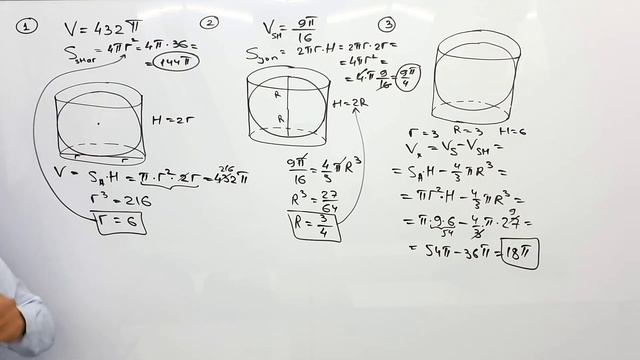 ① V = 432π
Sshar = 4πr² = 4π·36 =
= 144π
H = 2r
r r
V = SA·H = π·r²·2r = 432π
216
r³ = 216
r = 6
② Vsh = 9π/16
Sjon = 2πr·H = 2πr·2r =
= 4πr² =
= 4·π·9/16 = 9π/4
R
R
H = 2R
9π/16 = 4/3 πR³
R³ = 27/64
R = 3/4
③
r = 3 R = 3 H = 6
Vx = VS - VSH =
= SA·H - 4/3 πR³ =
= πr²H - 4/3 πR³ =
= π·9·6 - 4/3·π·27 =
54
9
= 54π - 36π = 18π